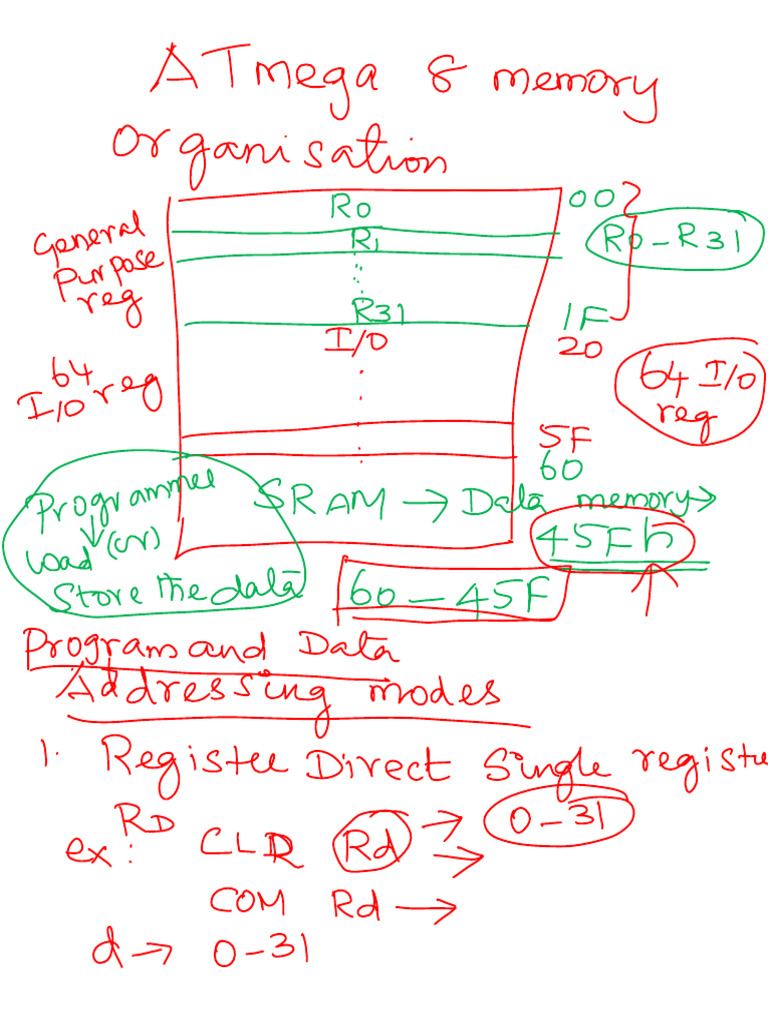 ATmega 8 memory
organisation
R0 00
General Purpose reg
R1 R0-R31
R31 1F
I/O 20
64 I/O reg
64 I/O reg
5F
60
Programmer
SRAM → Data memory →
Load (or)
45Fh
Store the data
60 - 45F
Program and Data
Addressing modes
1. Register Direct Single registe
RD 0-31
ex: CLR Rd →
COM Rd →
d → 0-31